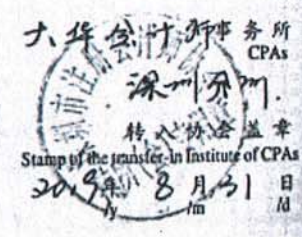 大华会计师事务所
CPAs
深圳分所
转入协会盖章
Stamp of the transfer-in Institute of CPAs
2019年8月31日
/y /m /d